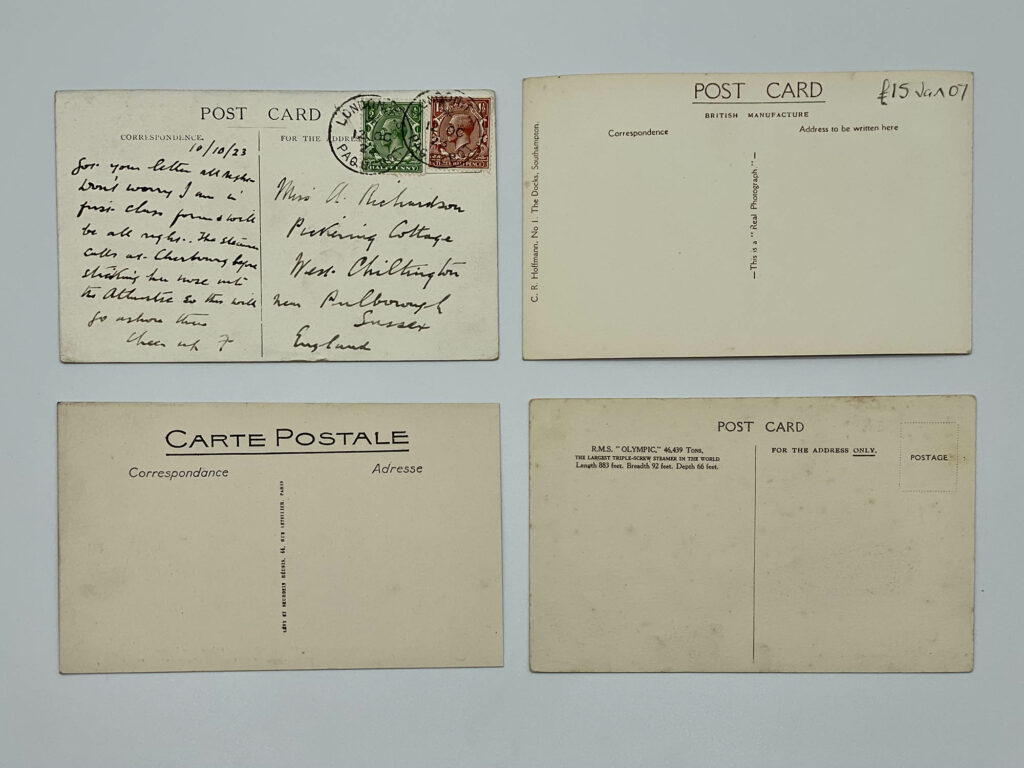 POST CARD
CORRESPONDENCE.
FOR THE ADDRESS
10/10/23
Got your letter all right
Don't worry I am in
first class form & will
be all right. The steamer
calls at Cherbourg before
sticking her nose out
the Atlantic so this will
go ashore there
Cheer up F
LONDON
12 OC
23
PAQ
HALFPENNY
LONDON
12 OC
23
PAQ
Miss A. Richardson
Pickering Cottage
West Chiltington
near Pulborough
Sussex
England
POST CARD
BRITISH MANUFACTURE
£15 Jan 07
Correspondence
Address to be written here
C. R. Hoffmann, No 1. The Docks, Southampton.
—This is a "Real Photograph"—
CARTE POSTALE
Correspondance
Adresse
LÉVY ET NEURDEIN RÉUNIS, 44, RUE LETELLIER, PARIS
POST CARD
R.M.S. "OLYMPIC," 46,439 Tons,
THE LARGEST TRIPLE-SCREW STEAMER IN THE WORLD
Length 883 feet. Breadth 92 feet. Depth 66 feet.
FOR THE ADDRESS ONLY.
POSTAGE